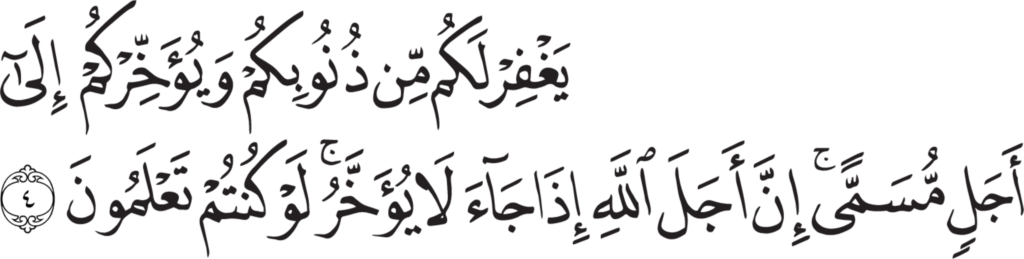 يَغْفِرْ لَكُم مِّن ذُنُوبِكُمْ وَيُؤَخِّرْكُمْ إِلَىٰٓ
أَجَلٍ مُّسَمًّى ۚ إِنَّ أَجَلَ ٱللَّهِ إِذَا جَآءَ لَا يُؤَخَّرُ ۚ لَوْ كُنتُمْ تَعْلَمُونَ ٤